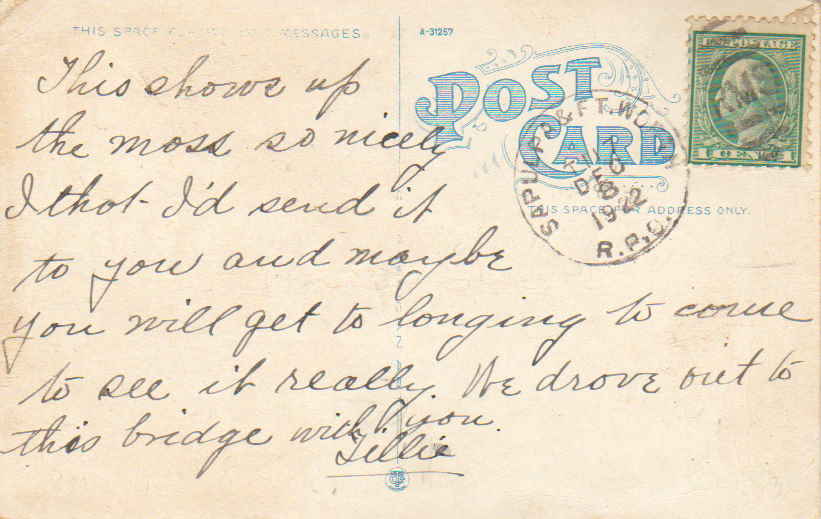 THIS SPACE MESSAGES
A-31257
POST CARD
U.S. POSTAGE
1 CENT 1
RMS
SAPULPA & FT. WORTH
DEC
1922
R.P.O.
THIS SPACE FOR ADDRESS ONLY.
This shows up
the moss so nicely
I thot I'd send it
to you and maybe
you will get to longing to come
to see it really. We drove out to
this bridge with you.
Tillie